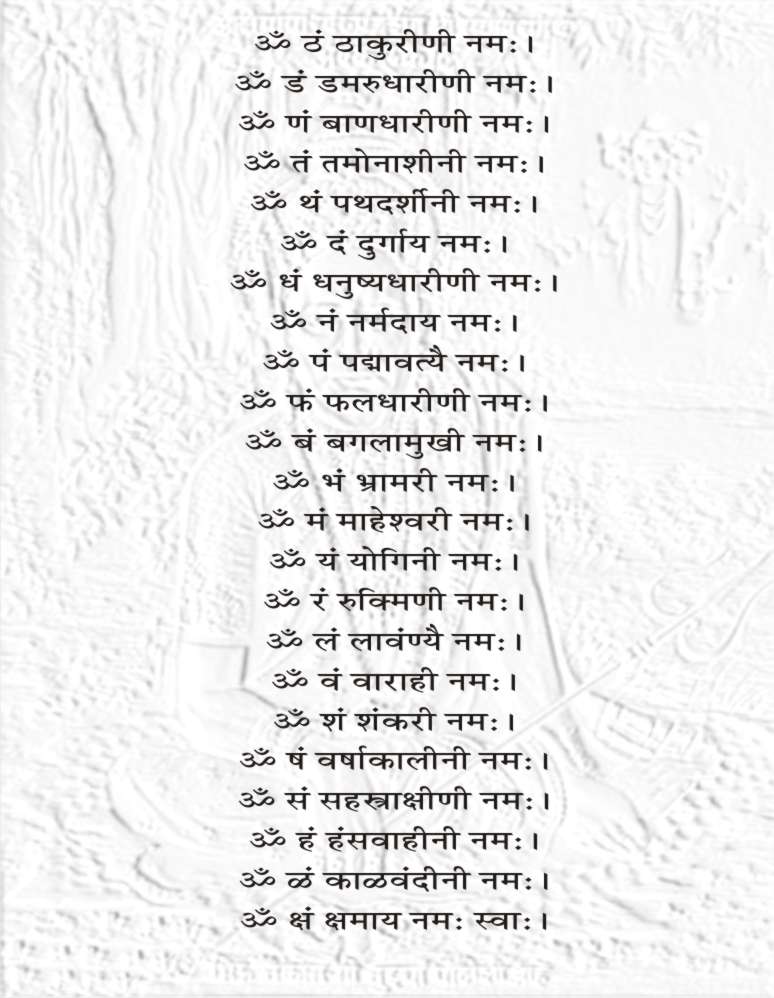 ॐ ठं ठाकुरीणी नमः।
ॐ डं डमरुधारीणी नमः।
ॐ णं बाणधारीणी नमः।
ॐ तं तमोनाशीनी नमः।
ॐ थं पथदर्शीनी नमः।
ॐ दं दुर्गाय नमः।
ॐ धं धनुष्यधारीणी नमः।
ॐ नं नर्मदाय नमः।
ॐ पं पद्मावत्यै नमः।
ॐ फं फलधारीणी नमः।
ॐ बं बगलामुखी नमः।
ॐ भं भ्रामरी नमः।
ॐ मं माहेश्वरी नमः।
ॐ यं योगिनी नमः।
ॐ रं रुक्मिणी नमः।
ॐ लं लावंण्यै नमः।
ॐ वं वाराही नमः।
ॐ शं शंकरी नमः।
ॐ षं वर्षाकालीनी नमः।
ॐ सं सहस्त्राक्षीणी नमः।
ॐ हं हंसवाहीनी नमः।
ॐ ळं काळवंदीनी नमः।
ॐ क्षं क्षमाय नमः स्वाः।